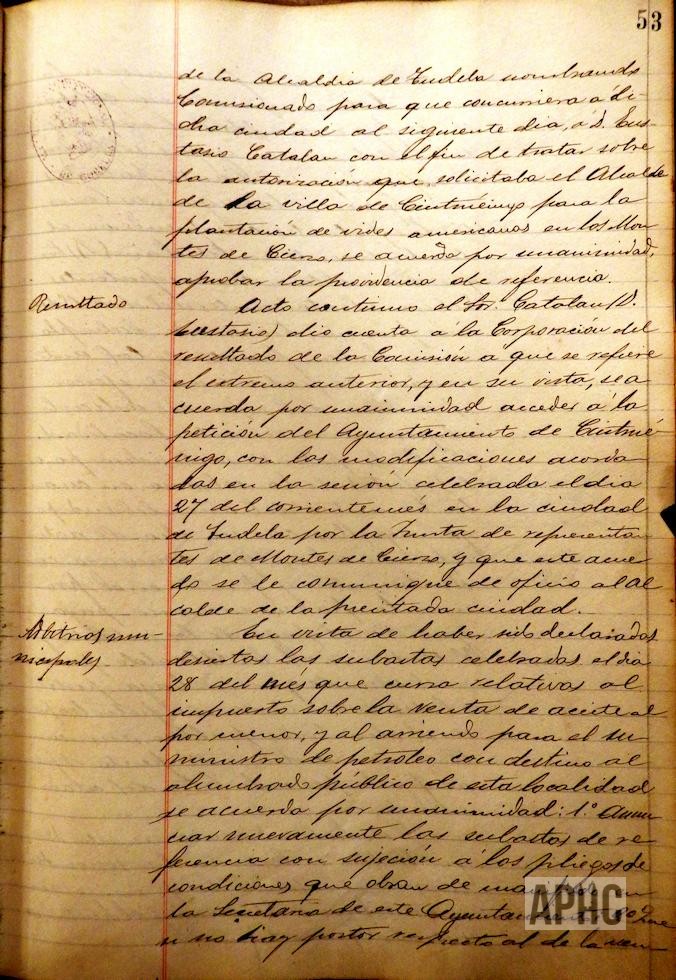 53
de la Alcaldia de Tudela nombrando
Comisionado para que concurriera á di-
cha ciudad al siguiente dia, á D. Eus-
tasio Catalan con el fin de tratar sobre
la autorización que solicitaba el Alcalde
de la villa de Cintruénigo para la
plantación de vides americanas en los Mon-
tes de Cierzo, se acuerda por unanimidad,
aprobar la providencia de referencia.
Resultado
Acto continuo el Sr. Catalan (D.
Eustasio) dio cuenta á la Corporación del
resultado de la Comisión a que se refiere
el extremo anterior, y en su vista, se a
cuerda por unanimidad acceder á la
petición del Ayuntamiento de Cintrué-
nigo, con las modificaciones acorda
das en la sesión celebrada el dia
27 del corriente més en la ciudad
de Tudela por la Junta de representan
tes de Montes de Cierzo, y que este acuer
do se le comunique de oficio al al
calde de la precitada ciudad.
Arbitrios mu-
nicipales
En vista de haber sido declaradas
desiertas las subastas celebradas el dia
28 del més que cursa relativas al
impuesto sobre la venta de aceite al
por menor, y al arriendo para el su
ministro de petroleo con destino al
alumbrado público de esta localidad
se acuerda por unanimidad: 1.º Anun
ciar nuevamente las subastas de re
ferencia con sujeción á los pliegos de
condiciones que obran de
la Secretaria de este 2º Que
si no hay postor respecto al de la ven
APHC